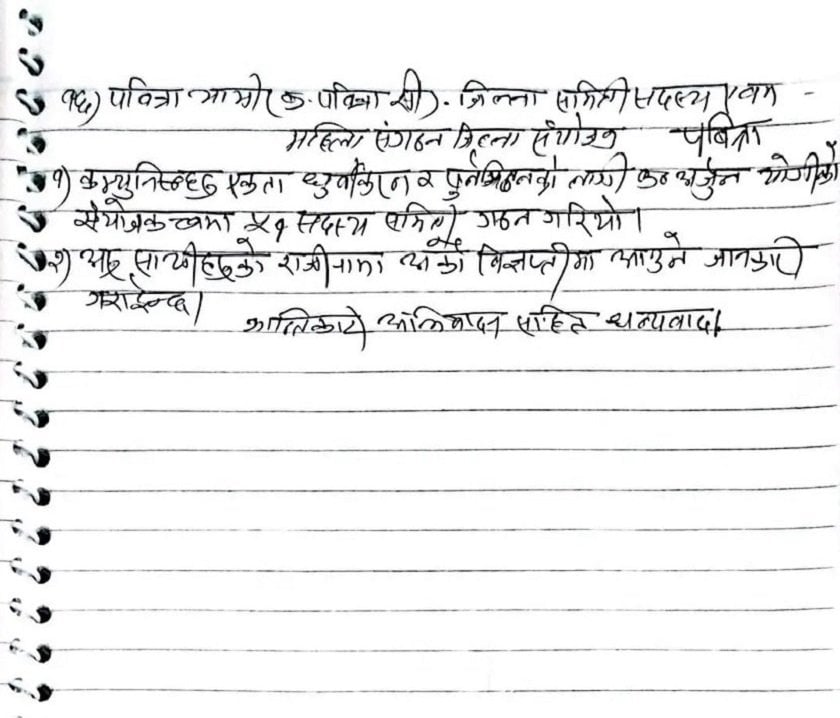 १६) पवित्रा मामी (क. पवित्रा सी). जिल्ला समिती सदस्य एवम
महिला संगठन जिल्ला संयोजक पबित्रा
१) कम्युनिस्टहरु एकता ध्रुवीकरण र पुर्नगठनको लागी क० अर्जुन योगीको
संयोजकत्वमा ५१ सदस्य समिती गठन गरियो।
२) अरु साथीहरुको राजीनामा अर्को विज्ञप्तीमा आउने जानकारी
गराईन्छ।
क्रान्तिकारी अभिवादन सहित धन्यवाद।